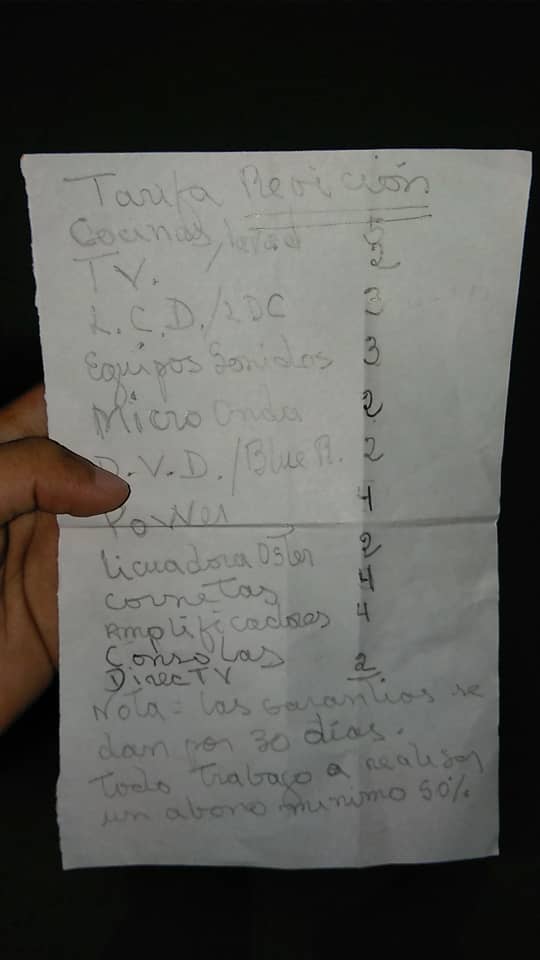 Tarifa Revición
Cocinas/lavad 5
TV. 2
L.C.D./LDC 3
Equipos Sonidos 3
Micro Onda 2
D.V.D./Blue R. 2
Power 4
Licuadora Oster 2
cornetas 4
Amplificadores 4
Consolas
DirecTV 2
Nota = las Garantias se
dan por 30 días.
todo trabajo a realisar
un abono minimo 50%